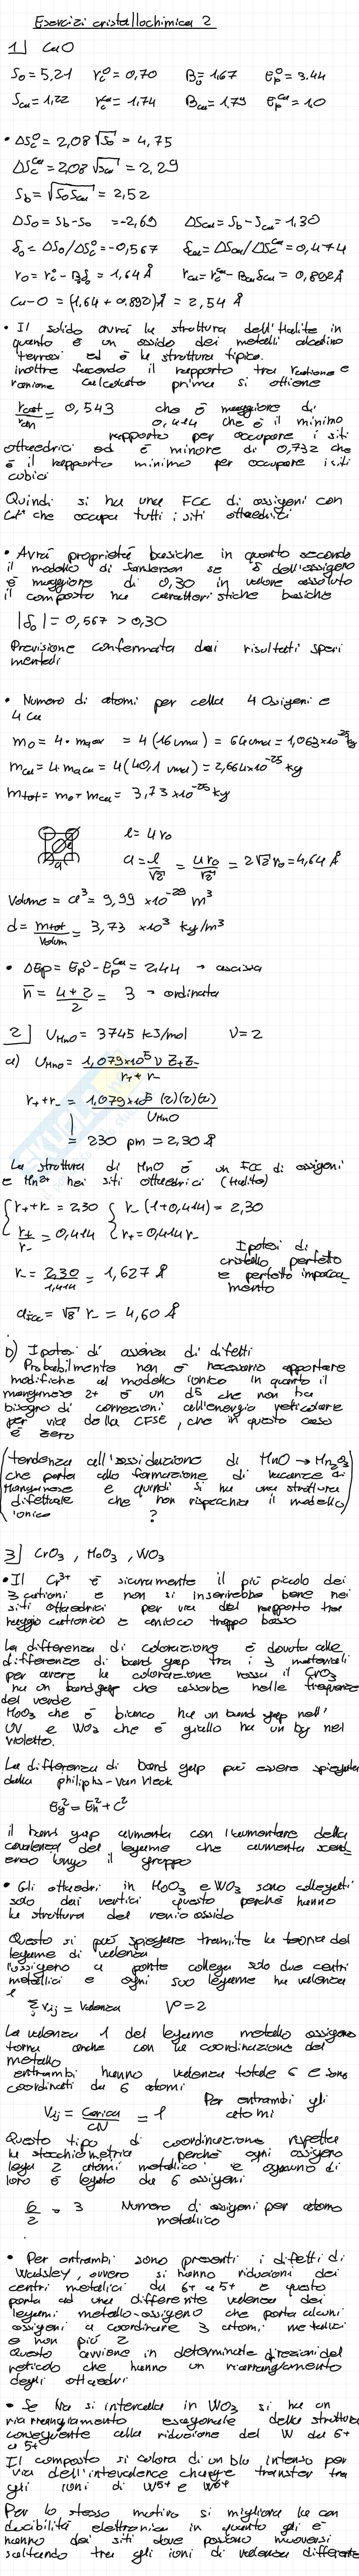 Esercizi cristallochimica 2
1] CaO
S₀ = 5,21 r_c^o = 0,70 B₀ = 1,67 E_p^o = 3.44
S_ca = 1,22 r_c^ca = 1,74 B_ca = 1,79 E_p^ca = 1,0
• ΔS_c^o = 2,08 √S₀ = 4,75
ΔS_c^ca = 2,08 √S_ca = 2,29
S_b = √S₀S_ca = 2,52
ΔS₀ = S_b - S₀ = -2,69 ΔS_ca = S_b - S_ca = 1,30
δ₀ = ΔS₀/ΔS_c^o = -0,567 δ_ca = ΔS_ca/ΔS_c^ca = 0,474
r₀ = r_c^o - B₀δ₀ = 1,64 Å r_ca = r_c^ca - B_ca δ_ca = 0,892 Å
Ca-O = (1,64 + 0,892) Å = 2,54 Å
• Il solido avrà la struttura dell'Halite in
quanto è un ossido dei metalli alcalino
terrosi ed è la struttura tipica.
inoltre facendo il rapporto tra r catione e
r anione calcolato prima si ottiene
r_cat/r_an = 0,543 che è maggiore di
0,414 che è il minimo
rapporto per occupare i siti
ottaedrici ed è minore di 0,732 che
è il rapporto minimo per occupare i siti
cubici
Quindi si ha una FCC di ossigeni con
che occupa tutti i siti ottaedrici
• Avrà proprietà basiche in quanto secondo
il modello di Sanderson se δ dell'ossigeno
è maggiore di 0,30 in valore assoluto
il composto ha caratteristiche basiche
|δ₀| = 0,567 > 0,30
Previsione confermata dai risultati speri
mentali
• Numero di atomi per cella 4 Ossigeni e
4 Ca
m₀ = 4 · = 4 (16 uma) = 64 uma = 1,063×10⁻²⁵ kg
m_ca = 4 · m_aca = 4 (40,1 uma) = 2,664×10⁻²⁵ kg
m_tot = m₀ + m_ca = 3,73×10⁻²⁵ kg
l = 4 r₀
a = l/√2 = 4r₀/√2 = 2√2 r₀ = 4,64 Å
Volume = a³ = 9,99 ×10⁻²⁹ m³
d = m_tot/Volum = 3,73 ×10³ kg/m³
• ΔE_p = E_p^o - E_p^ca = 2,44 → ascissa
n̄ = 4+2/2 = 3 → ordinata
2] U_MnO = 3745 kJ/mol ν = 2
a) U_MnO = 1,079×10⁵ ν Z₊Z₋/r₊+r₋
r₊+r₋ = 1,079×10⁵ (2)(2)(2)/U_MnO
= 230 pm = 2,30 Å
La struttura di MnO è un FCC di ossigeni
e Mn²⁺ nei siti ottaedrici (Halite)
{ r₊+r₋ = 2,30 { r₋ (1+0,414) = 2,30
r₊/r₋ = 0,414 r₊ = 0,414 r₋
Ipotesi di
cristallo perfetto
e perfetto impacca
mento
r₋ = 2,30/1,414 = 1,627 Å
a_FCC = √8 r₋ = 4,60 Å
b) Ipotesi di assenza di difetti
Probabilmente non è necessario apportare
modifiche al modello ionico in quanto il
manganese 2+ è un d5 che non ha
bisogno di correzioni all'energia reticolare
per via della CFSE, che in questo caso
è zero
(tendenza all'ossidazione di MnO → Mn₂O₃
che porta alla formazione di vacanze di
Manganese e quindi si ha una struttura
difettuale che non rispecchia il modello
ionico ?)
3] CrO₃, MoO₃, WO₃
• Il Cr³⁺ è sicuramente il più piccolo dei
3 cationi e non si inserirebbe bene nei
siti ottaedrici per via del rapporto tra
raggio cationico e anionico troppo basso
La differenza di colorazione è dovuta alle
differenze di band gap tra i 3 materiali
per avere la colorazione rossa il CrO₃
ha un bandgap che assorbe nelle frequenze
del verde
MoO₃ che è bianco ha un band gap nell'
UV e WO₃ che è giallo ha un bg nel
violetto.
La differenza di band gap può essere spiegata
dalla philiphs-Van Vleck
Eg² = Eh² + C²
il band gap aumenta con l'aumentare della
covalenza del legame che aumenta scend
endo lungo il gruppo
• Gli ottaedri in MoO₃ e WO₃ sono collegati
solo dai vertici questo perchè hanno
la struttura del renio ossido
Questo si può spiegare tramite la teoria del
legame di valenza
l'ossigeno a ponte collega solo due centri
metallici e ogni suo legame ha valenza
1
Σ v_ij = Valenza V° = 2
La valenza 1 del legame metallo ossigeno
torna anche con la coordinazione del
metallo
entrambi hanno valenza totale 6 e sono
coordinati da 6 atomi
V_ij = carica/CN = 1 Per entrambi gli
atomi
Questo tipo di coordinazione rispetta
la stecchiometria perchè ogni ossigeno
lega 2 atomi metallici e ognuno di
loro è legato da 6 ossigeni
6/2 = 3 Numero di ossigeni per atomo
metallico
• Per entrambi sono presenti i difetti di
Wadsley, ovvero si hanno riduzioni dei
centri metallici da 6+ a 5+ e questo
porta ad una differente valenza dei
legami metallo-ossigeno che porta alcuni
ossigeni a coordinare 3 atomi metallici
e non più 2
Questo avviene in determinate direzioni del
reticolo che hanno un riarrangiamento
degli ottaedri
• Se Na si intercala in WO₃ si ha un
riarrangiamento esagonale della struttura
conseguente alla riduzione del W da 6+
a 5+
Il composto si colora di un blu intenso per
via dell'intervalence charge transfer tra
gli ioni di W⁵⁺ e W⁶⁺
Per lo stesso motivo si migliora la con
ducibilità elettronica in quanto gli e⁻
hanno dei siti dove possono muoversi
saltando tra gli ioni di valenza differente